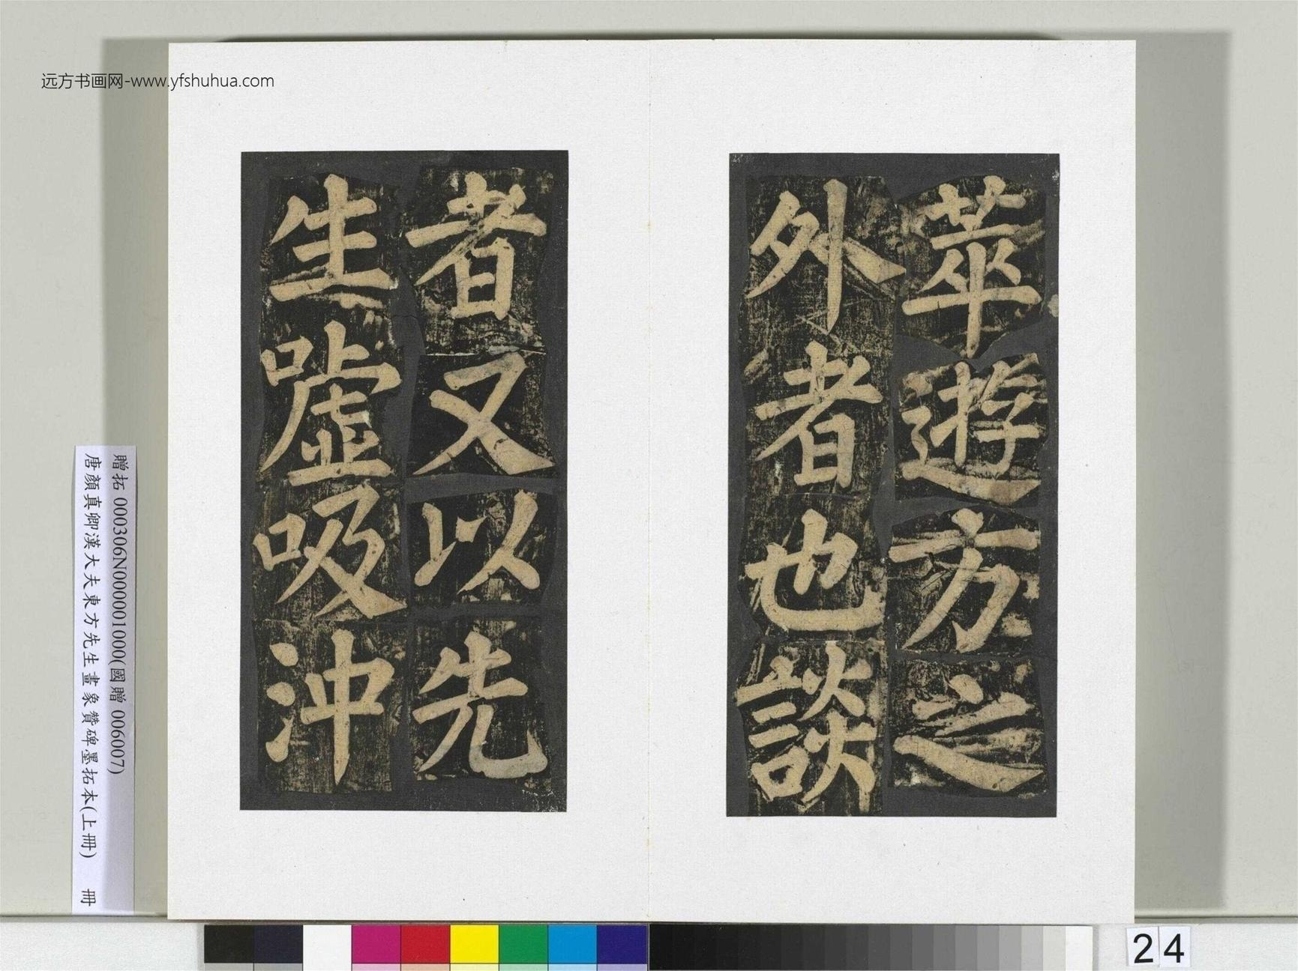 远方书画网-www.yfshuhua.com
萃遊方之
外者也談
者又以先
生嘘吸沖
贈拓 000306N000001000(國贈 006007)
唐顏真卿漢大夫東方先生畫象贊碑墨拓本(上冊) 冊
24